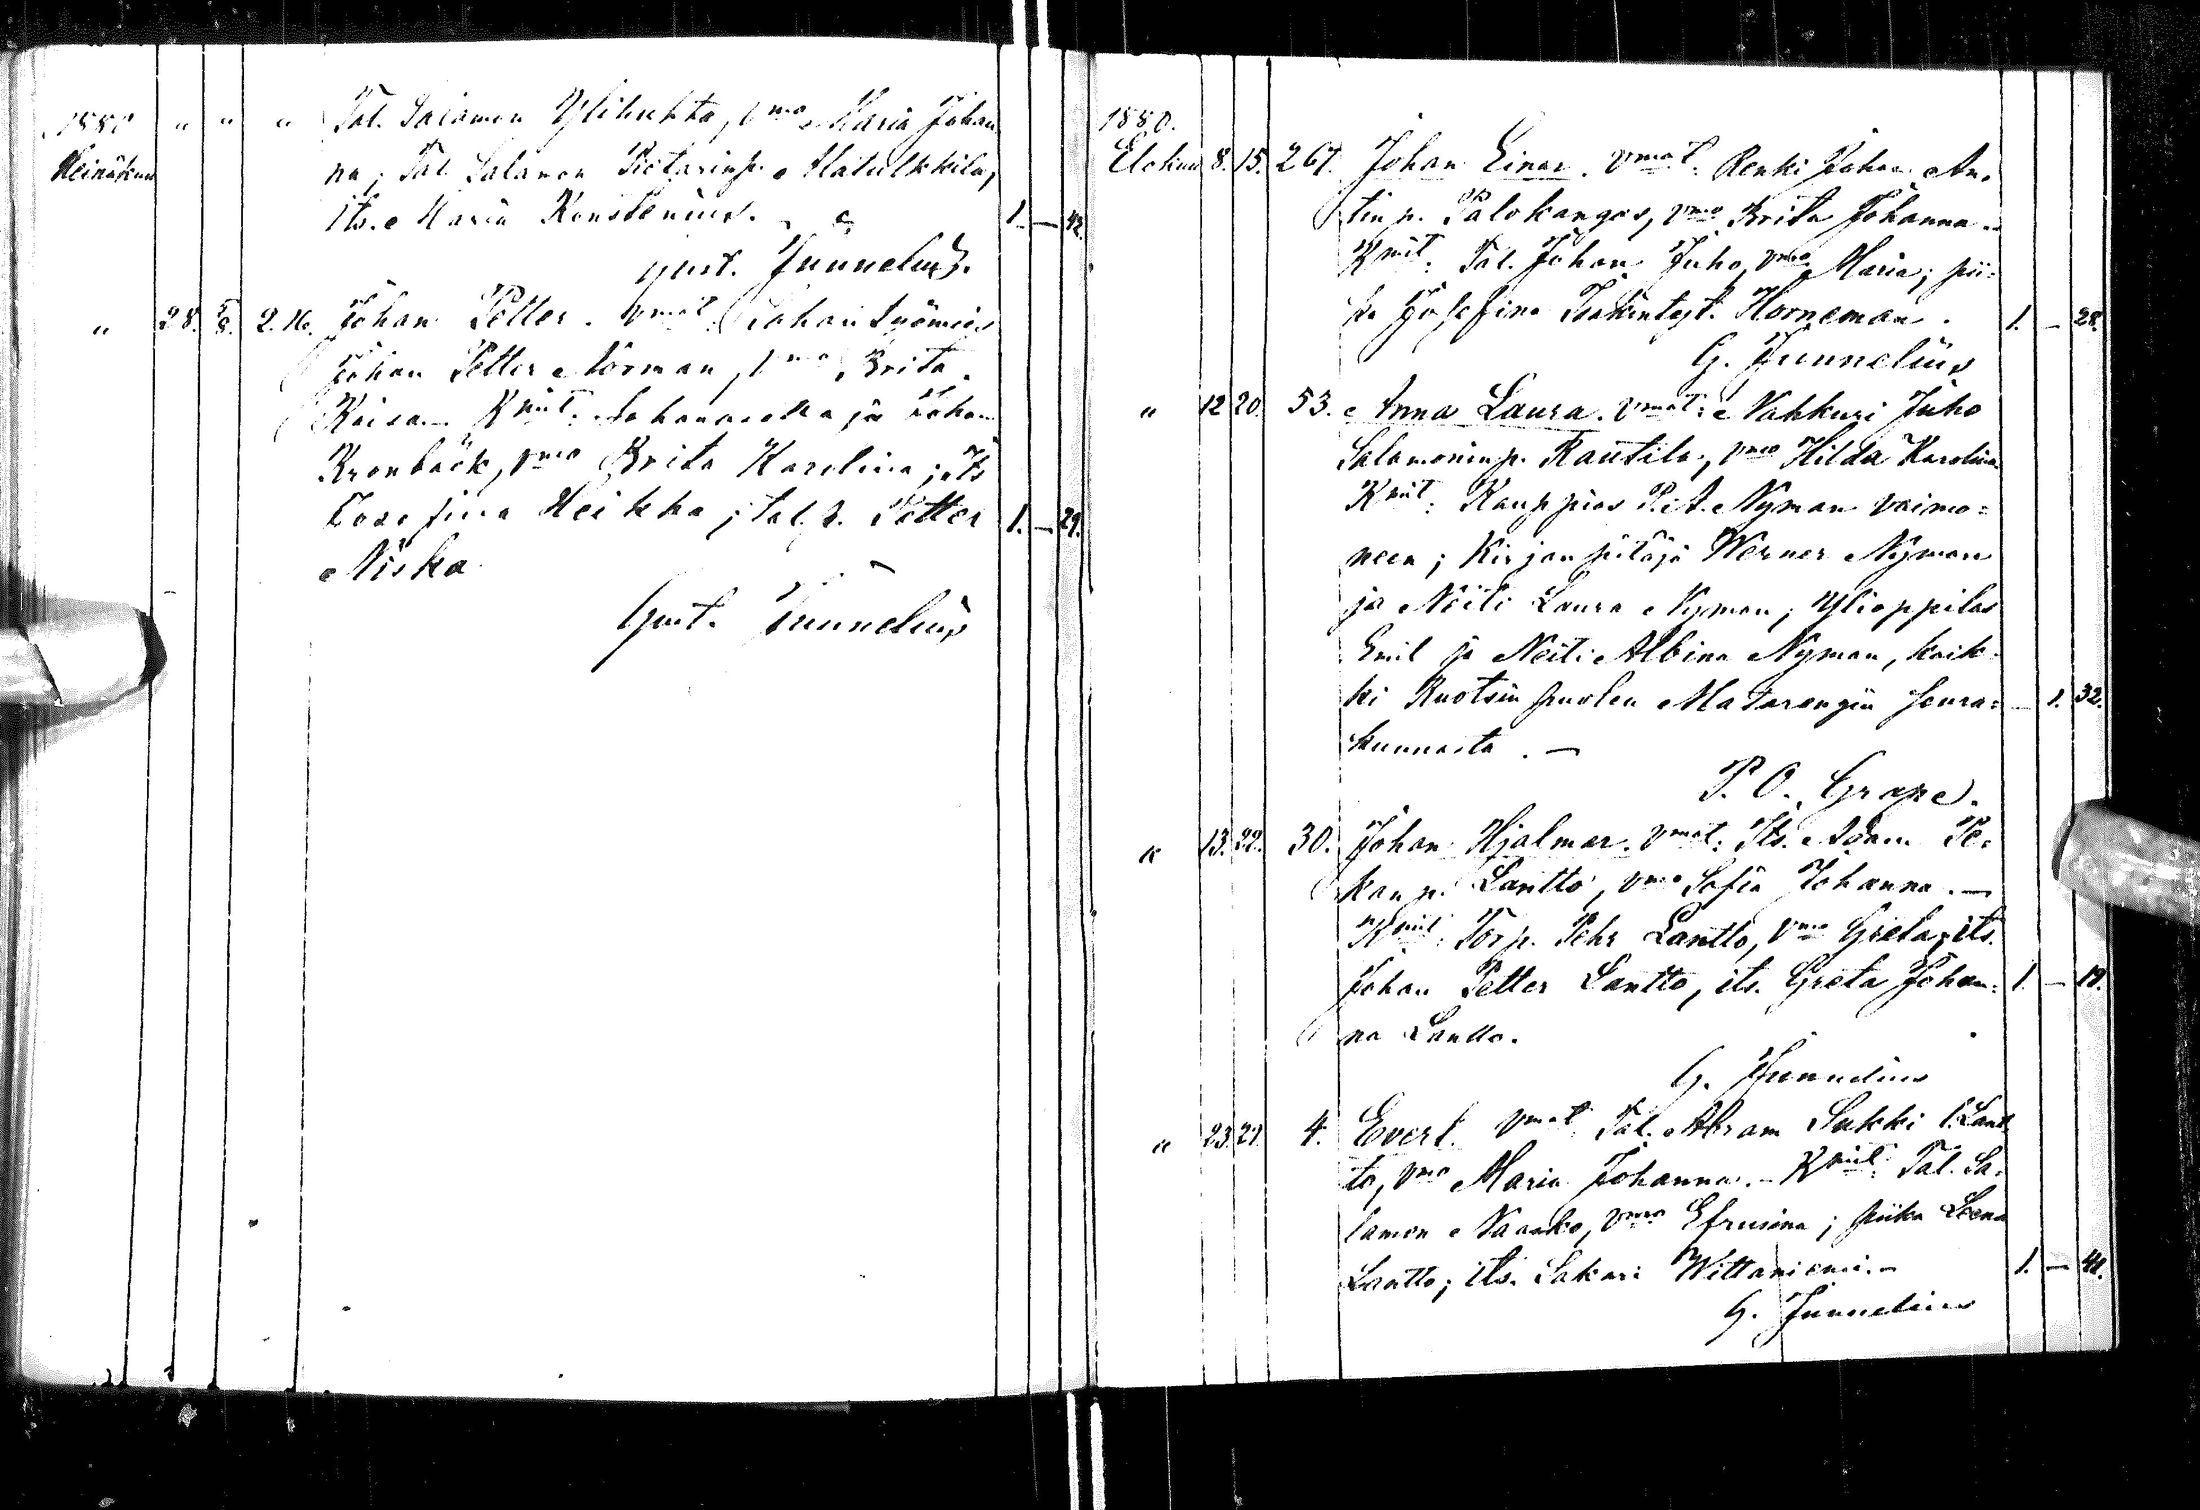 1880 " " " Tal. Salamon Ylikukka, vmo Maria Johan
Heinäkuu na; Tal. Salamon Pietarinp. Alatulkkila,
its. Maria Konstenius. 1. — 42.
Gust. Junnelius.
" 28. 5/8. 216. Johan Petter. Vmat:
Johan Petter Norman, vmo Brita
Kaisa. Kmit: ja Johan
Kronbäck, vmo Brita Karolina; its
Josefina Heikka; tal. p. Petter 1. — 29.
Niska
Gust. Junnelius
1880.
Elokuu 8. 15. 267. Johan Einar. Vmat: Renki Johan An-
tin p. Palokangas, vmo Brita Johanna.
Kmit: Tal. Johan Juho, vmo Maria; pii-
ka Josefina Isakintyt. Horneman. 1. — 28.
G. Junnelius
" 12 20. 53. Anna Laura. Vmat: Nahkuri Juho
Salamoninp. Rautila, vmo Hilda Karolina
Kmit: Kauppias P. A. Nyman vaimo=
neen; Kirjanpitäjä Werner Nyman
ja Neiti Laura Nyman; Ylioppilas
Emil ja Neiti Albina Nyman, kaik-
ki Ruotsin puolen Matarengin seura= — 1. 32.
kunnasta. —
P. O. Grape.
" 13. 22. 30. Johan Hjalmar. Vmat: Its. Adam Pe-
kan p. Lantto, vmo Sofia Johanna. —
Kmit: Torp. Pehr Lantto, vmo Greta; its.
Johan Petter Lantto, its. Greta Johan= 1. — 19.
na Lantto.
G. Junnelius
" 23. 29. 4. Evert. Vmat: Tal. Abram Sukki l. Lant
to, vmo Maria Johanna. – Kmit: Tal. Sa-
lamon Naarko, vmo Efrusina; piika Leena
Lantto; its. Sakari Wittaniemi. – 1. — 41.
G. Junnelius